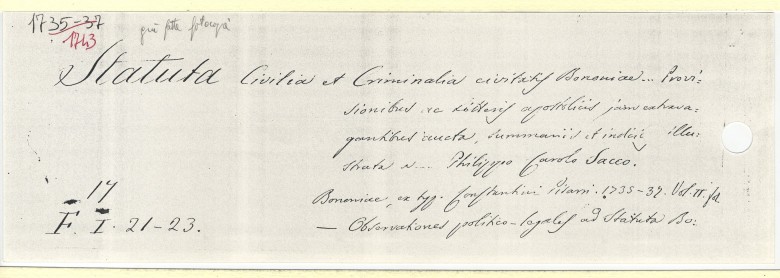 1735-37
1743
già fatta fotocopia
Statuta Civilia et Criminalia civitatis Bononiae... Provi-
sionibus ac Litteris apostolicis jam extrava-
gantibus aucta, summariis et indice illu-
strata a... Philippo Carolo Sacco.
Bononiae, ex typ. Constantini Pisarri. 1735-37. Vol. II. fol.
— Observationes politico-legales ad Statuta Bo-
17
F. I. 21-23.